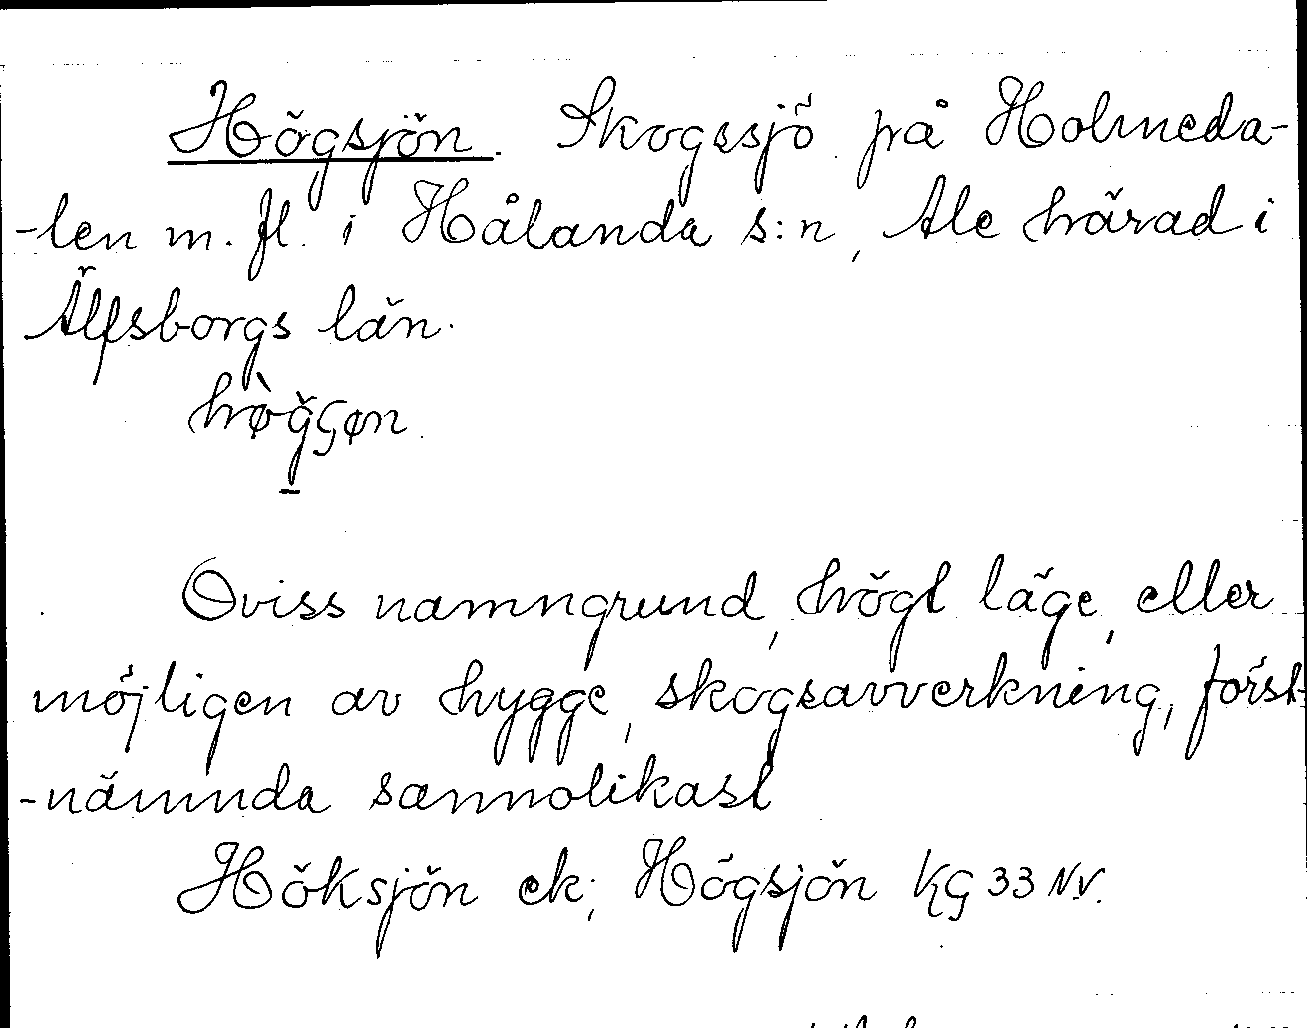 Högsjön. Skogssjö på Holmeda-
-len m. fl. i Hålanda s:n, Ale härad i
Älfsborgs län.
Oviss namngrund, högt läge, eller
möjligen av hygge, skogsavverkning, först-
-nämnda sannolikast
Höksjön ek; Högsjön KG 33 NV.